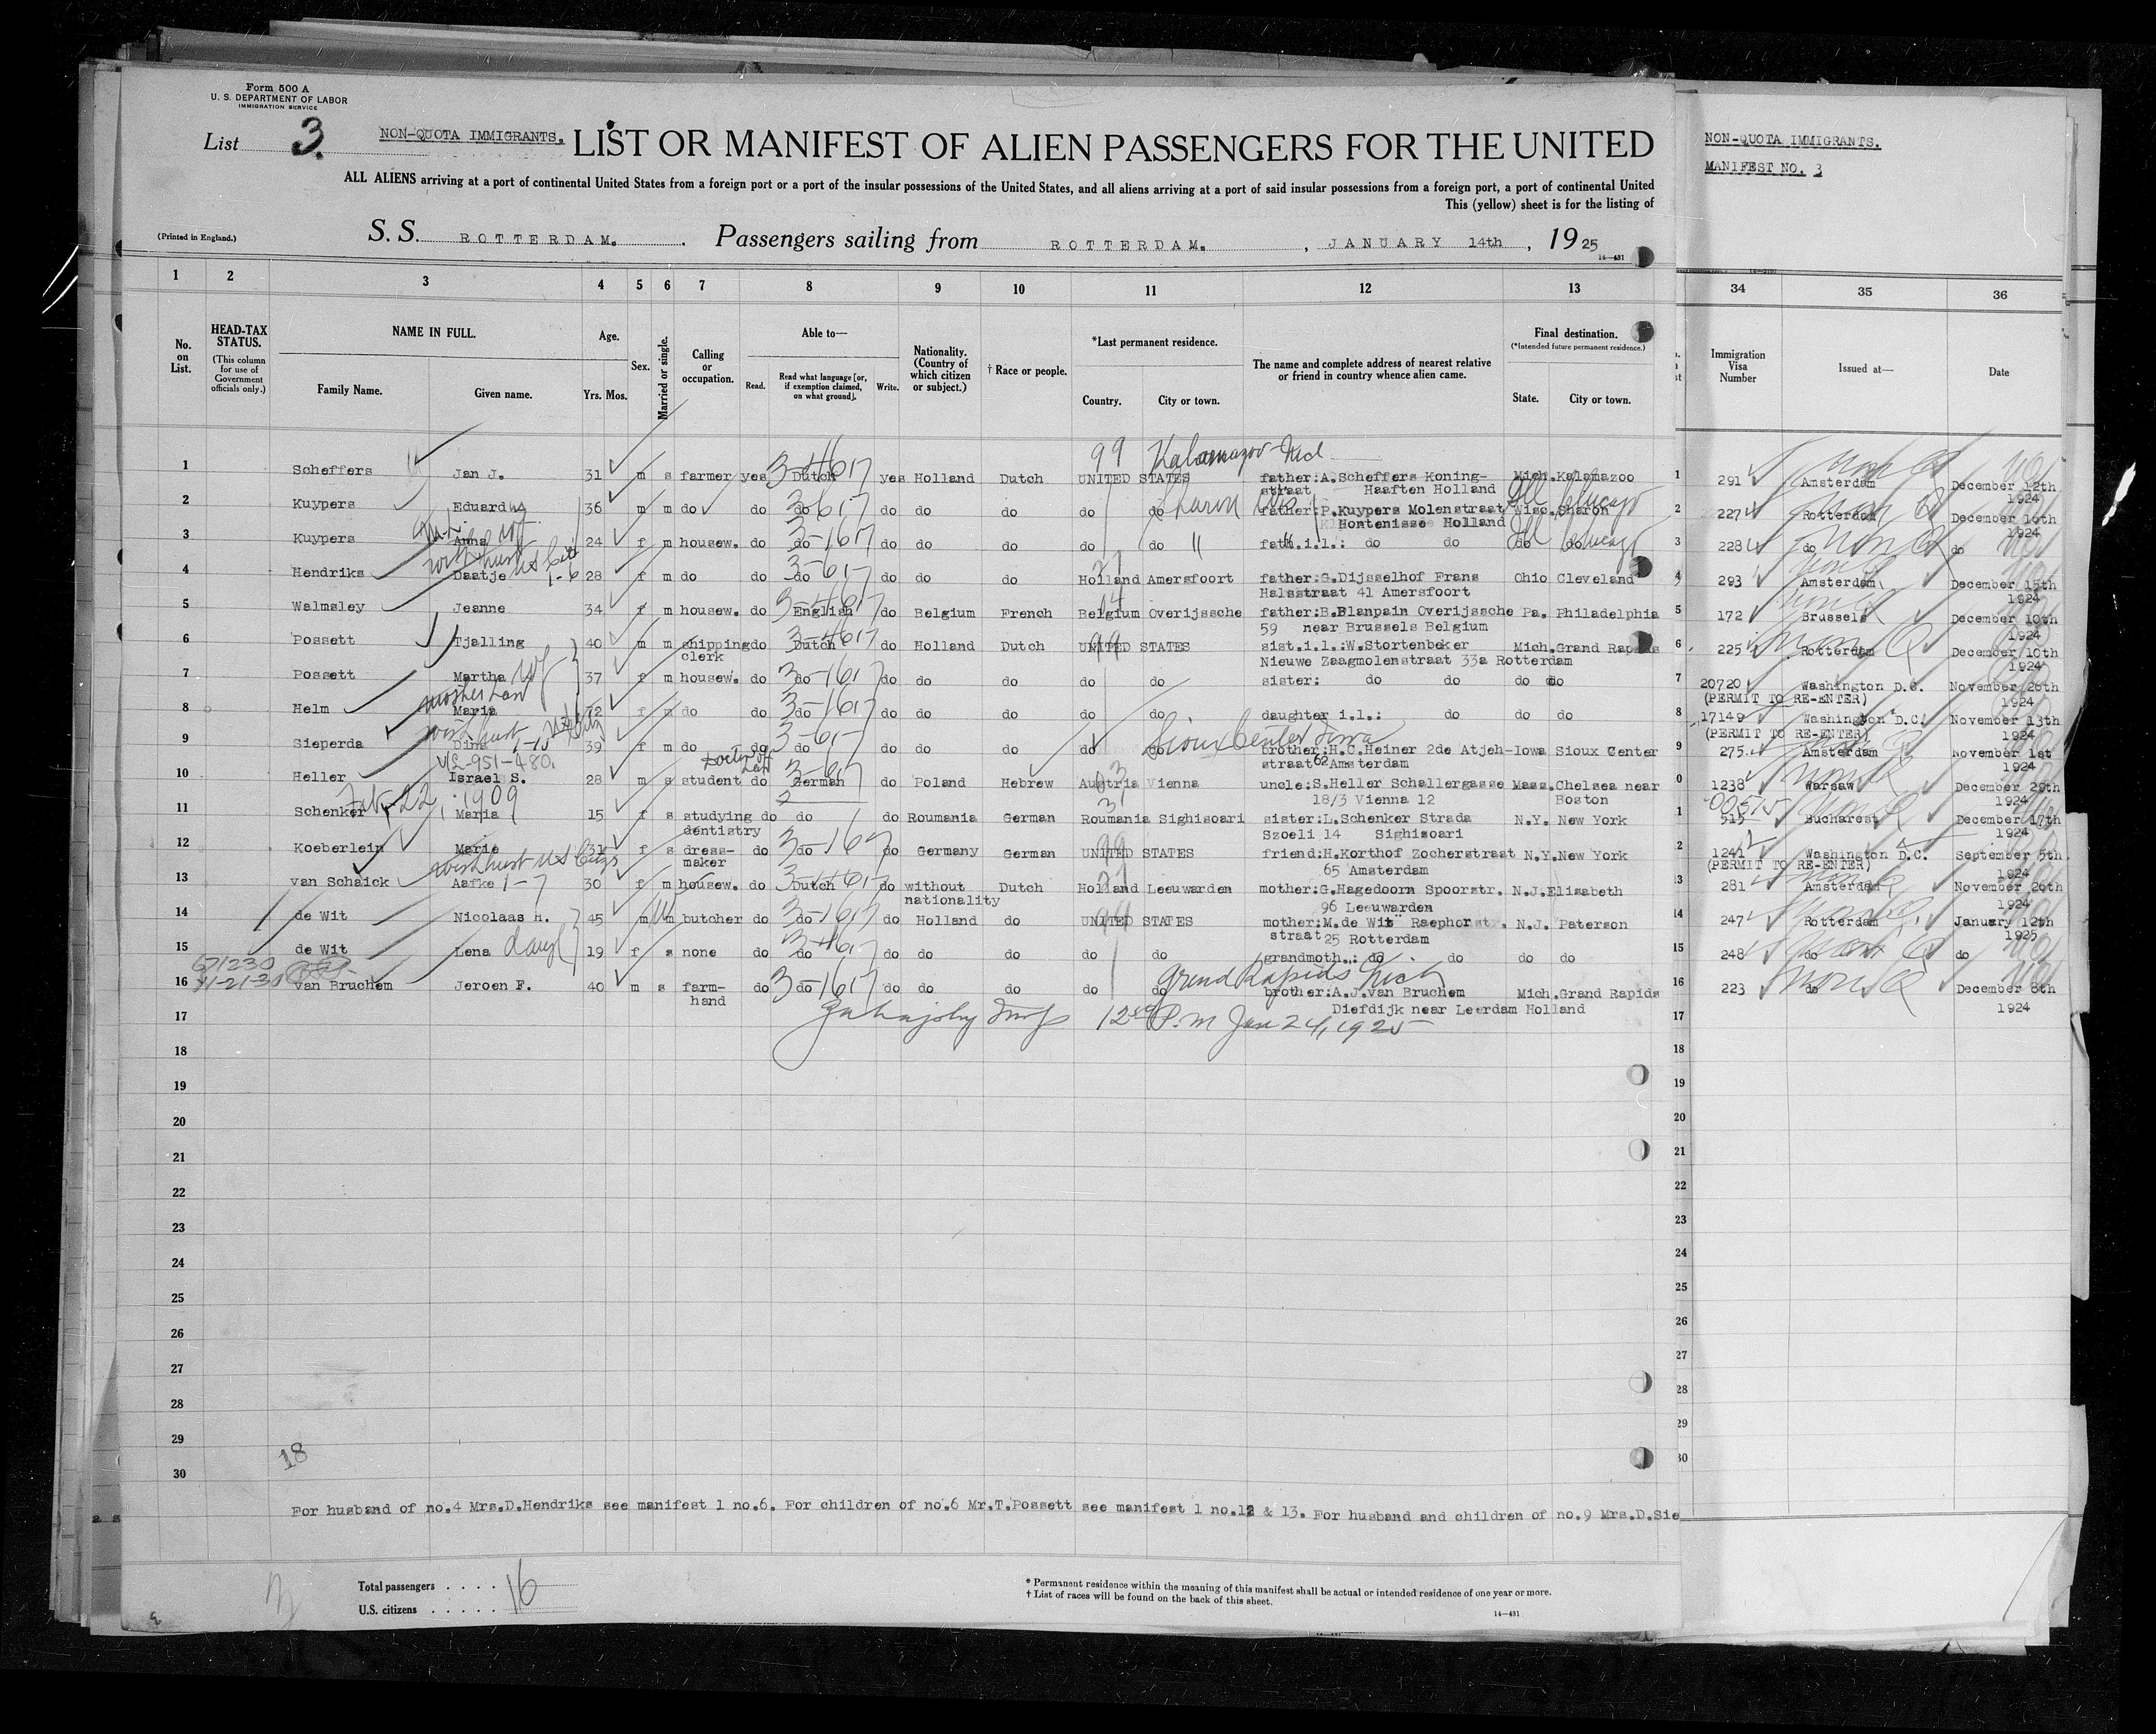 Form 500 A
U. S. DEPARTMENT OF LABOR
IMMIGRATION SERVICE
List 3. NON-QUOTA IMMIGRANTS. LIST OR MANIFEST OF ALIEN PASSENGERS FOR THE UNITED
ALL ALIENS arriving at a port of continental United States from a foreign port or a port of the insular possessions of the United States, and all aliens arriving at a port of said insular possessions from a foreign port, a port of continental United
This (yellow) sheet is for the listing of
(Printed in England.) S. S. ROTTERDAM. Passengers sailing from ROTTERDAM. , JANUARY 14th , 19 25
14—431
NON-QUOTA IMMIGRANTS.
MANIFEST NO. 3
1 2 3 4 5 6 7 8 9 10 11 12 13 34 35 36
No. on List.
HEAD-TAX STATUS.
(This column for use of Government officials only.)
NAME IN FULL.
Family Name. Given name.
Age.
Yrs. Mos.
Sex.
Married or single.
Calling or occupation.
Able to—
Read. Read what language [or, if exemption claimed, on what ground]. Write.
Nationality. (Country of which citizen or subject.)
† Race or people.
*Last permanent residence.
Country. City or town.
The name and complete address of nearest relative or friend in country whence alien came.
Final destination.
(*Intended future permanent residence.)
State. City or town.
Immigration Visa Number
Issued at—
Date
99 Kalamazoo Mich
1 Scheffers Jan J. 31 m s farmer yes Dutch yes Holland Dutch UNITED STATES father:A.Scheffers Koning- Mich.Kalamazoo 1 291 Amsterdam December 12th
straat Haaften Holland 1924
2 Kuypers Eduard 36 m m do do do do do do do do father:P.Kuypers Molenstraat Wisc.Sharon 2 227 Rotterdam December 16th
Sharon Wis Ill Chicago
Hontenisse Holland 1924
3 Kuypers Anna wf 24 f m housew. do do do do do do do fath.i.l.: do do do do 3 228 do do
Ill Chicago
1924
4 Hendriks Daatje 1-6 28 f m do do do do do do Holland Amersfoort father:G.Dijsselhof Frans Ohio Cleveland 4 293 Amsterdam December 15th
Halsstraat 41 Amersfoort 1924
5 Walmsley Jeanne 34 f m housew. do English do Belgium French Belgium Overijssche father:B.Blanpain Overijssche Pa. Philadelphia 5 172 Brussels December 10th
59 near Brussels Belgium 1924
6 Possett Tjalling 40 m m shipping do Dutch do Holland Dutch UNITED STATES sist.i.l.:W.Stortenbeker Mich.Grand Rapids 6 225 Rotterdam December 10th
clerk Nieuwe Zaagmolenstraat 33a Rotterdam 1924
7 Possett Martha wf 37 f m housew. do do do do do do do sister: do do do do 7 20720 Washington D.C. November 20th
(PERMIT TO RE-ENTER) 1924
mother Law
8 Helm Maria 72 f m do do do do do do do do daughter i.l.: do do do 8 17149 Washington D.C. November 13th
(PERMIT TO RE-ENTER) 1924
Sioux Center Iowa
9 Sieperda Dina 39 f m do do do do do do do do brother:H.C.Heiner 2de Atjeh- Iowa Sioux Center 9 275 Amsterdam November 1st
straat 62 Amsterdam 1924
VL-951-480
10 Heller Israel S. 28 m s student do German do Poland Hebrew Austria Vienna uncle:S.Heller Schallergasse Mass.Chelsea near 0 1238 Warsaw December 29th
18/3 Vienna 12 Boston 1924
Feb-22, 1909
11 Schenker Maria 15 f s studying do do do Roumania German Roumania Sighisoari sister:L.Schenker Strada N.Y. New York 1 515 Bucharest December 17th
dentistry Szoeli 14 Sighisoari 1924
12 Koeberlein Marie 31 f s dress- do do do Germany German UNITED STATES friend:H.Korthof Zocherstraat N.Y.New York 2 1241 Washington D.C. September 5th
maker 65 Amsterdam (PERMIT TO RE-ENTER) 1924
13 van Schaick Aafke 1-7 30 f m housew. do Dutch do without Dutch Holland Leeuwarden mother:G.Hagedoorn Spoorstr. N.J.Elizabeth 13 281 Amsterdam November 20th
nationality 96 Leeuwarden 1924
14 de Wit Nicolaas H. 45 m m butcher do do do Holland do UNITED STATES mother:M.de Wit Raephorst. N.J. Paterson 14 247 Rotterdam January 12th
straat 25 Rotterdam 1925
15 de Wit Lena daug 19 f s none do do do do do do do grandmoth.: do do do do 15 248 do do
671230
11-21-30
Grand Rapids Mich
16 van Bruchem Jeroen F. 40 m s farm- do do do do do do do brother:A.J.van Bruchem Mich.Grand Rapids 16 223 do December 8th
hand Diefdijk near Leerdam Holland 1924
17 P.M Jan 24, 1925 17
18 18
19 19
20 20
21 21
22 22
23 23
24 24
25 25
26 26
27 27
28 28
29 29
18
30 30
For husband of no.4 Mrs.D.Hendriks see manifest 1 no.6. For children of no.6 Mr.T.Possett see manifest 1 no.12 & 13. For husband and children of no.9 Mrs.D.Sie
Total passengers . . . . 16
U.S. citizens . . . . .
* Permanent residence within the meaning of this manifest shall be actual or intended residence of one year or more.
† List of races will be found on the back of this sheet.
14—431